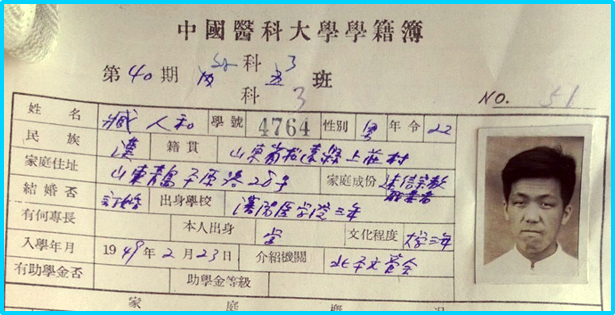 中國醫科大學學籍簿
第40期 科 3 班
科 3
NO. 51
姓名 臧人和 學號 4764 性別 男 年令 22
民族 漢 籍貫 山東省 縣上莊村
家庭住址 山東青島平原路28号 家庭成份
結婚否 出身學校 瀋陽医学院三年
有何專長 本人出身 学 文化程度 大学三年
入學年月 1949年2月23日 介紹機關 北平文管会
有助學金否 助學金等級
家庭概況